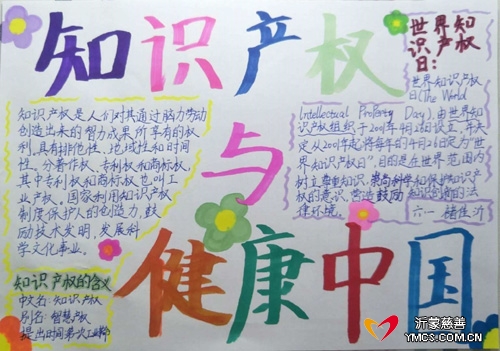 知识产权
与
健康中国
知识产权是人们对其通过脑力劳动
创造出来的智力成果所享有的权
利，具有排他性、地域性和时间
性。分著作权、专利权和商标权，
其中专利权和商标权也叫工
业产权。国家利用知识产权
制度保护人的创造力，鼓
励技术发明，发展科
学文化事业。
知识产权的含义
中文名：知识产权
别名：智慧产权
提出时间：第六
世界知
识产权
日：
世界知识产权
日(The World
Intellectual Property Day)，由世界知
识产权组织于2001年4月26日设立，并决
定从2001年起将每年的4月26日定为"世
界知识产权日"，目的是在世界范围内
树立尊重知识，崇尚科学和保护知识产
权的意识，营造鼓励知识创新的法
律环境。
六一
沂蒙慈善
YMCS.COM.CN